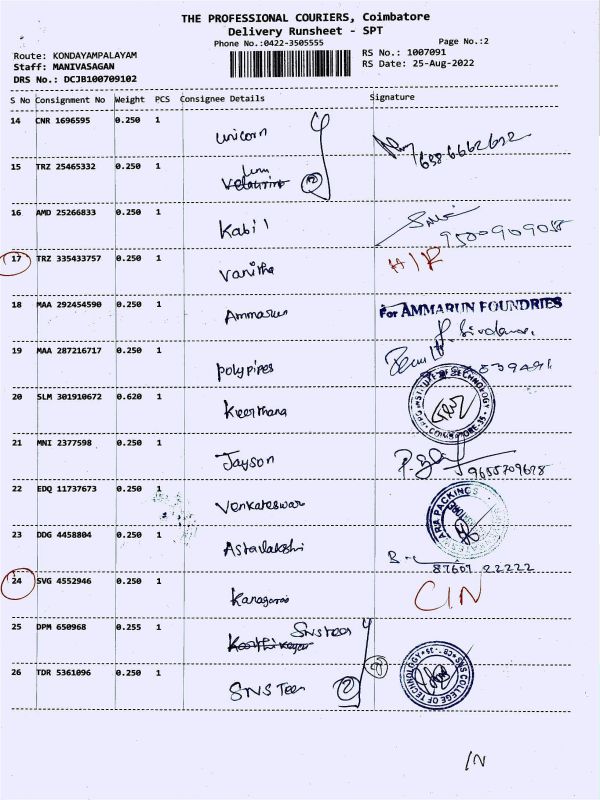 THE PROFESSIONAL COURIERS, Coimbatore
Delivery Runsheet - SPT
Phone No.:0422-3505555
Page No.:2
Route: KONDAYAMPALAYAM
RS No.: 1007091
Staff: MANIVASAGAN
RS Date: 25-Aug-2022
DRS No.: DCJB100709102
S No Consignment No Weight PCS Consignee Details Signature
14 CNR 1696595 0.250 1 Unicorn
15 TRZ 25465332 0.250 1
16 AMD 25266833 0.250 1 Kabil
17 TRZ 335433757 0.250 1 Vanitha
18 MAA 292454590 0.250 1 Ammarun For AMMARUN FOUNDRIES
19 MAA 287216717 0.250 1 Polypipes
20 SLM 301910672 0.620 1 Keerthana INSTITUTE OF TECHNOLOGY COIMBATORE-35
21 MNI 2377598 0.250 1 Jayson 9655709678
22 EDQ 11737673 0.250 1 Venkateswar ARA PACKINGS
23 DDG 4458804 0.250 1 Astailakshi 87607 22222
24 SVG 4552946 0.250 1 CIN
25 DPM 650968 0.255 1 SNS Tees
26 TDR 5361096 0.250 1 SNS Tees 2 SNS COLLEGE OF TECHNOLOGY CB-35
IN